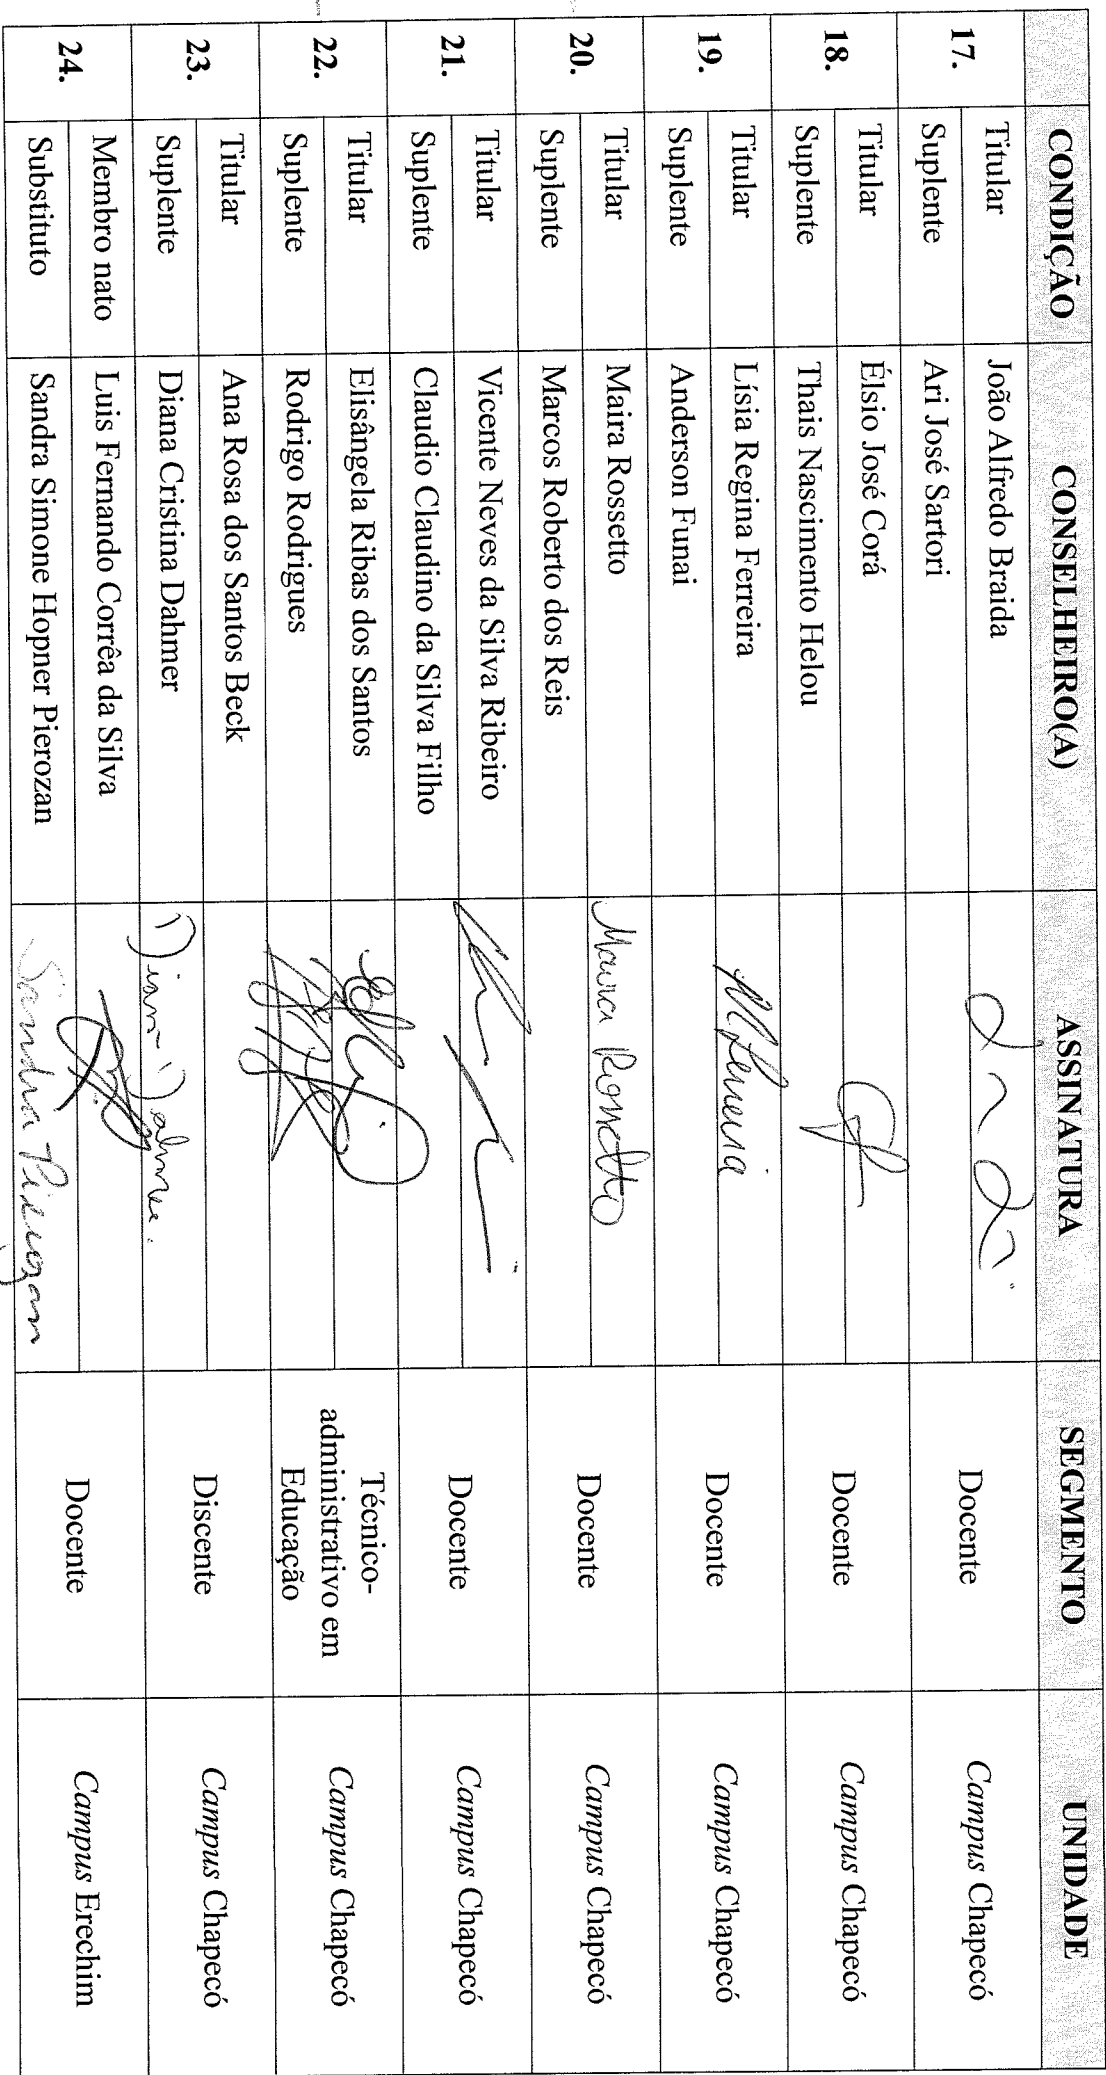 CONDIÇÃO CONSELHEIRO(A) ASSINATURA SEGMENTO UNIDADE
17. Titular João Alfredo Braida Docente Campus Chapecó
Suplente Ari José Sartori
18. Titular Élsio José Corá Docente Campus Chapecó
Suplente Thais Nascimento Helou
19. Titular Lísia Regina Ferreira Docente Campus Chapecó
Suplente Anderson Funai
20. Titular Maira Rossetto Maira Rossetto Docente Campus Chapecó
Suplente Marcos Roberto dos Reis
21. Titular Vicente Neves da Silva Ribeiro Docente Campus Chapecó
Suplente Claudio Claudino da Silva Filho
22. Titular Elisângela Ribas dos Santos Técnico-
administrativo em
Educação Campus Chapecó
Suplente Rodrigo Rodrigues
23. Titular Ana Rosa dos Santos Beck Discente Campus Chapecó
Suplente Diana Cristina Dahmer Diana Dahmer.
24. Membro nato Luis Fernando Corrêa da Silva Docente Campus Erechim
Substituto Sandra Simone Hopner Pierozan Sandra Pierozan